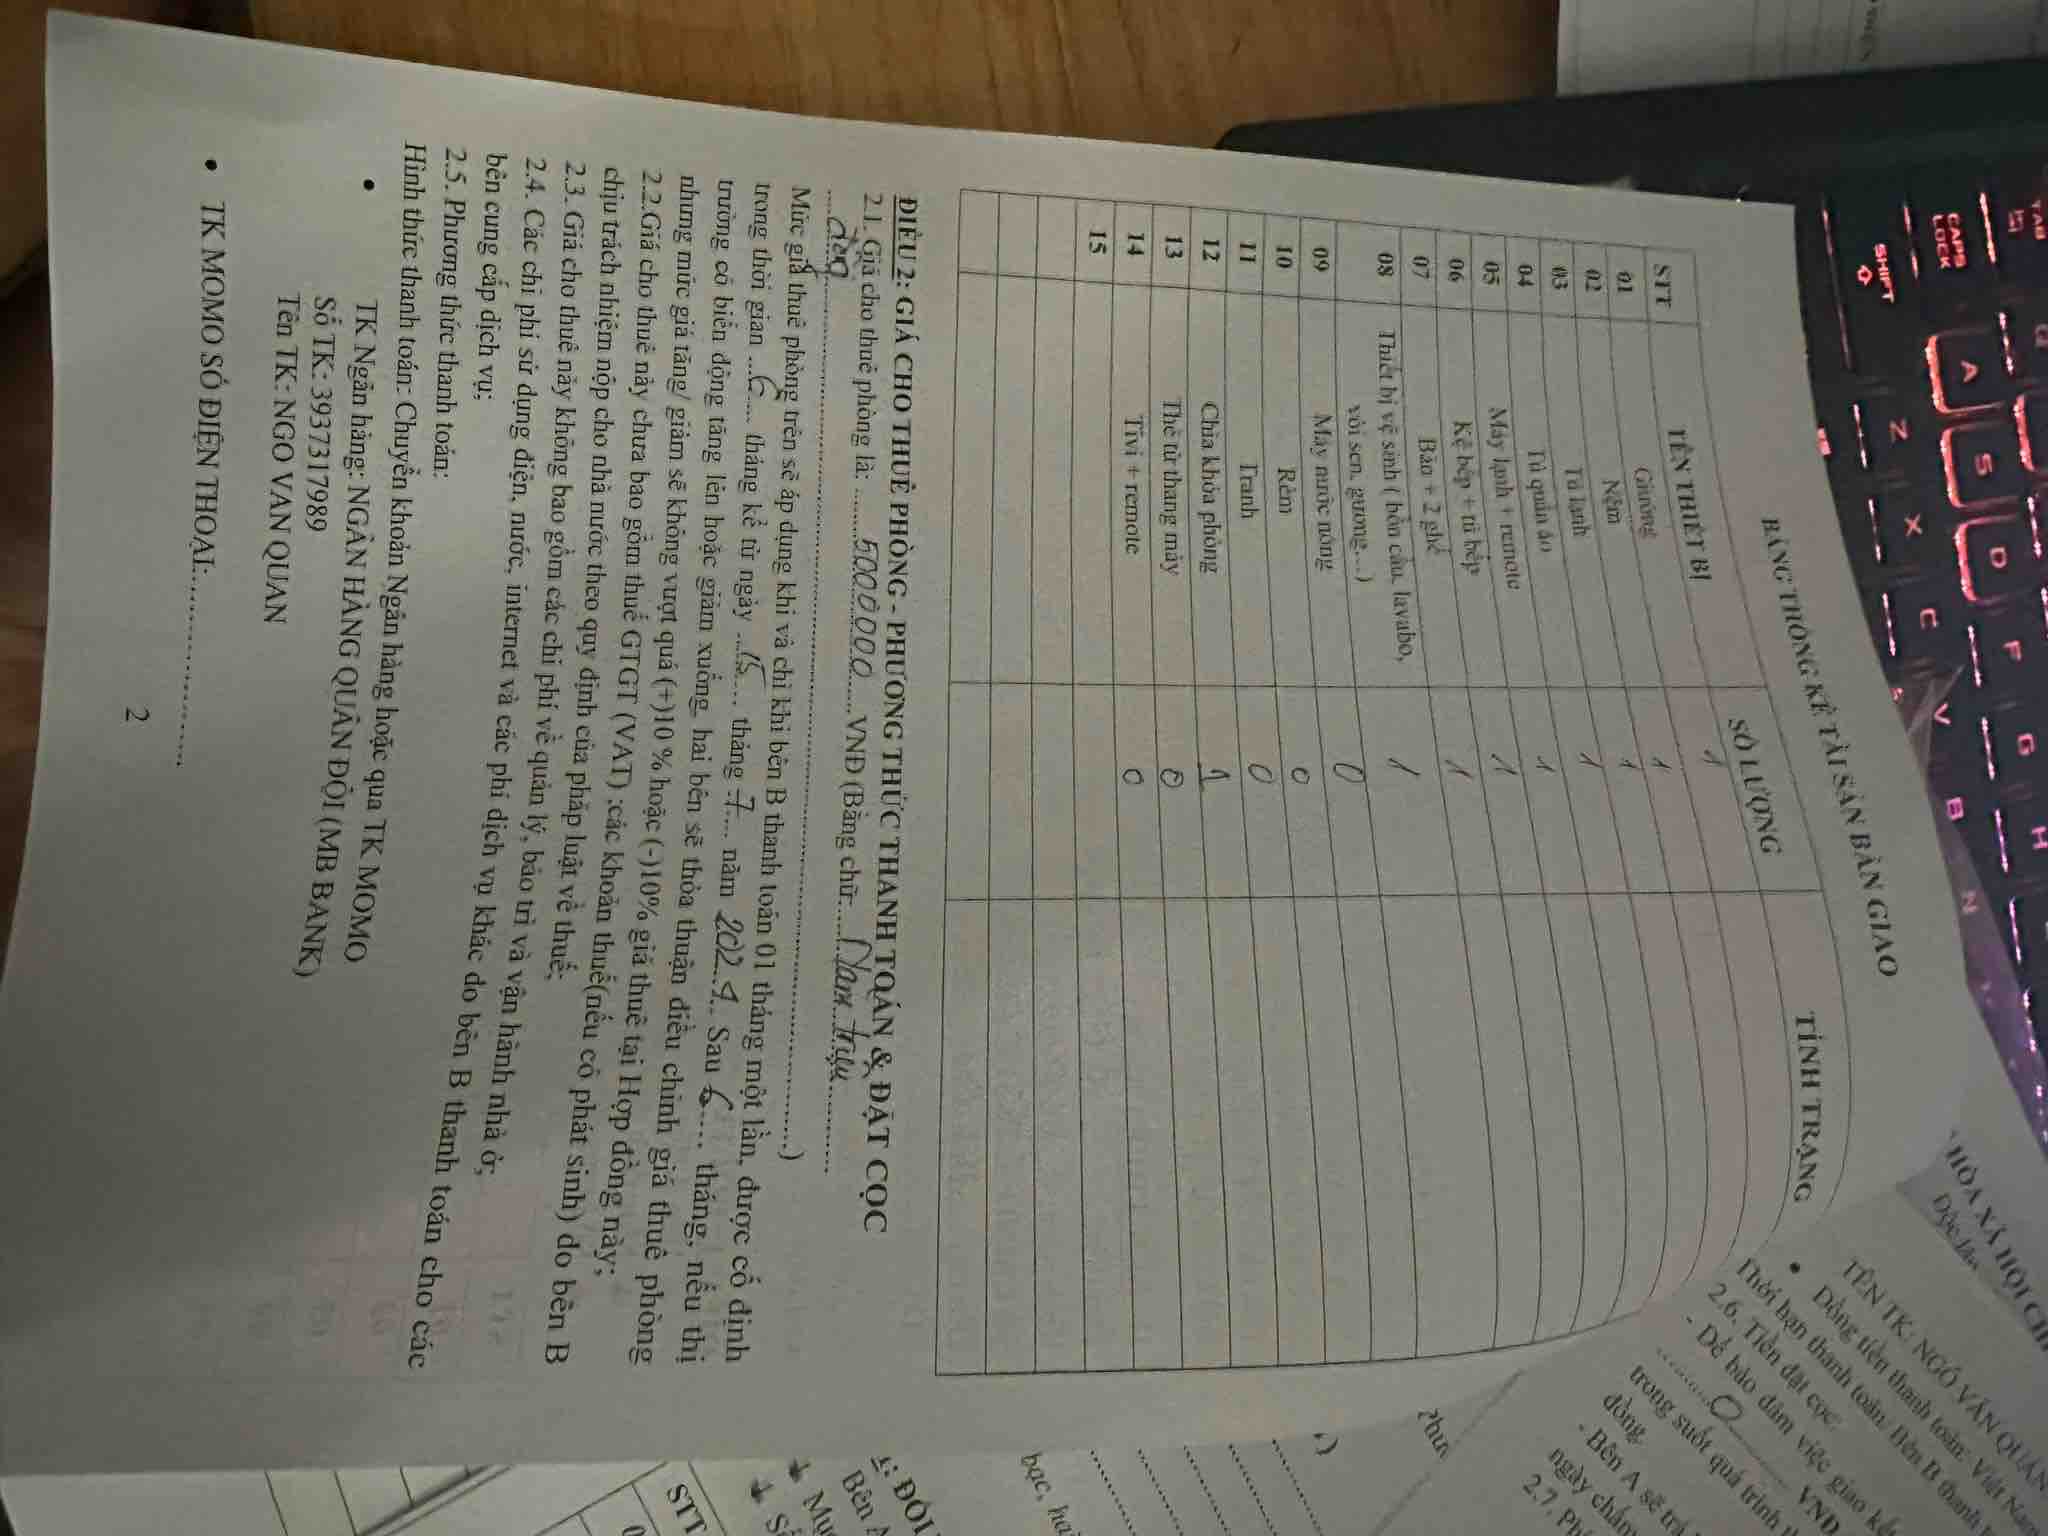 BẢNG THỐNG KÊ TÀI SẢN BÀN GIAO
STT TÊN THIẾT BỊ SỐ LƯỢNG TÌNH TRẠNG
1
01 Giường 1
02 Nệm 1
03 Tủ lạnh 1
04 Tủ quần áo 1
05 Máy lạnh + remote 1
06 Kệ bếp + tủ bếp 1
07 Bàn + 2 ghế
08 Thiết bị vệ sinh ( bồn cầu, lavabo, 1
vòi sen, gương,...)
09 Máy nước nóng 0
10 Rèm 0
11 Tranh 0
12 Chìa khóa phòng 1
13 Thẻ từ thang máy 0
14 Tivi + remote 0
15
ĐIỀU 2: GIÁ CHO THUÊ PHÒNG - PHƯƠNG THỨC THANH TOÁN & ĐẶT CỌC
2.1. Giá cho thuê phòng là: ........5.000.000..... VNĐ (Bằng chữ:.....Năm triệu............
....đồng....................................................................................)
Mức giá thuê phòng trên sẽ áp dụng khi và chỉ khi bên B thanh toán 01 tháng một lần, được cố định
trong thời gian ...6.... tháng kể từ ngày ....15.... tháng .7.... năm 2024.. Sau 6.... tháng, nếu thị
trường có biến động tăng lên hoặc giảm xuống, hai bên sẽ thỏa thuận điều chỉnh giá thuê phòng
nhưng mức giá tăng/ giảm sẽ không vượt quá (+)10 % hoặc (-)10% giá thuê tại Hợp đồng này;
2.2.Giá cho thuê này chưa bao gồm thuế GTGT (VAT) ;các khoản thuế(nếu có phát sinh) do bên B
chịu trách nhiệm nộp cho nhà nước theo quy định của pháp luật về thuế;
2.3. Giá cho thuê này không bao gồm các chi phí về quản lý, bảo trì và vận hành nhà ở;
2.4. Các chi phí sử dụng điện, nước, internet và các phí dịch vụ khác do bên B thanh toán cho các
bên cung cấp dịch vụ;
2.5. Phương thức thanh toán:
Hình thức thanh toán: Chuyển khoản Ngân hàng hoặc qua TK MOMO
• TK Ngân hàng: NGÂN HÀNG QUÂN ĐỘI (MB BANK)
Số TK: 3937317989
Tên TK: NGO VAN QUAN
• TK MOMO SỐ ĐIỆN THOẠI:...........................
2
HÒA XÃ HỘI CH
TÊN TK: NGÔ VĂN QUÂN
• Đồng tiền thanh toán: Việt Nam
Thời hạn thanh toán: Bên B thanh
2.6. Tiền đặt cọc:
- Để bảo đảm việc giao kế
........0........ VNĐ
trong suốt quá trình
đồng.
- Bên A sẽ trả
ngày chấm
2.7. Ph
bạc,
: ĐỐI
Bên
Mụ
STT
TAB
CAPS LOCK
SHIFT
A S D F G H
Z X C V B N